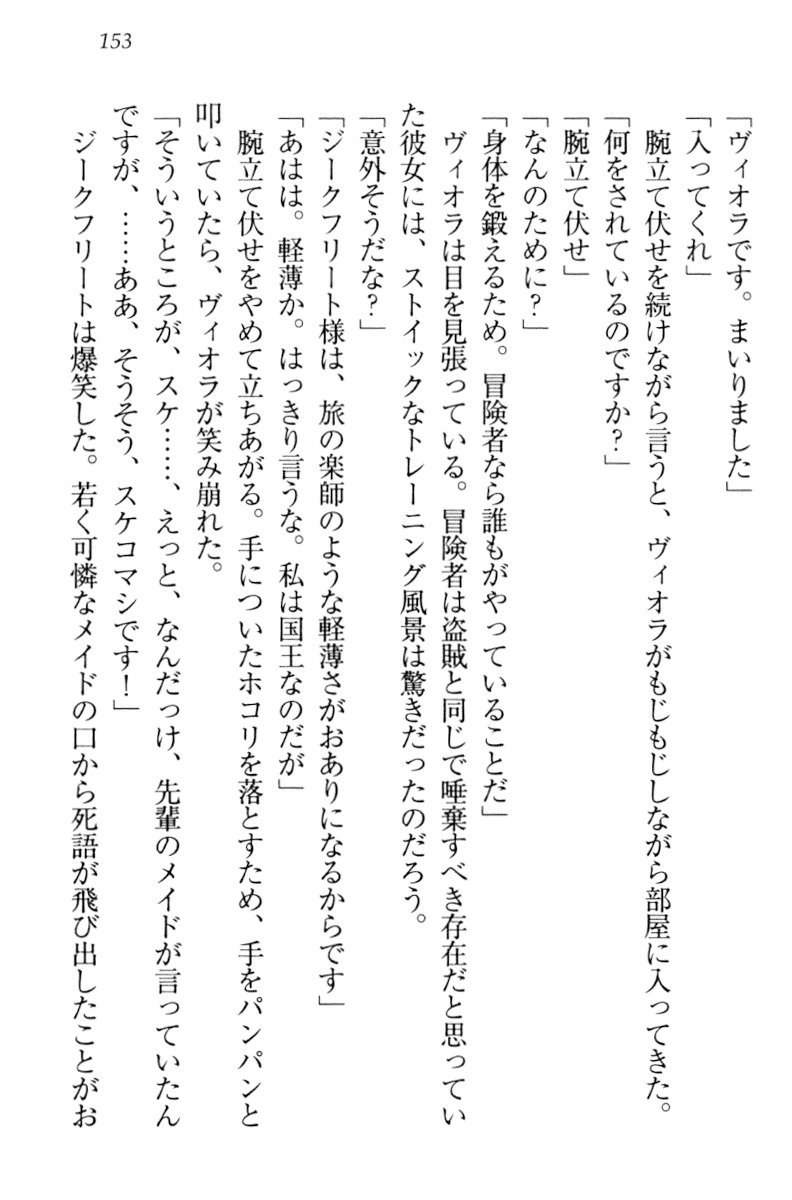 153
「ヴィオラです。まいりました」
「入ってくれ」
　腕立て伏せを続けながら言うと、ヴィオラがもじもじしながら部屋に入ってきた。
「何をされているのですか?」
「腕立て伏せ」
「なんのために?」
「身体を鍛えるため。冒険者なら誰もがやっていることだ」
　ヴィオラは目を見張っている。冒険者は盗賊と同じで唾棄すべき存在だと思ってい
た彼女には、ストイックなトレーニング風景は驚きだったのだろう。
「意外そうだな?」
「ジークフリート様は、旅の楽師のような軽薄さがおありになるからです」
「あはは。軽薄か。はっきり言うな。私は国王なのだが」
　腕立て伏せをやめて立ちあがる。手についたホコリを落とすため、手をパンパンと
叩いていたら、ヴィオラが笑み崩れた。
「そういうところが、スケ……、えっと、なんだっけ、先輩のメイドが言っていたん
ですが、……ああ、そうそう、スケコマシです!」
　ジークフリートは爆笑した。若く可憐なメイドの口から死語が飛び出したことがお